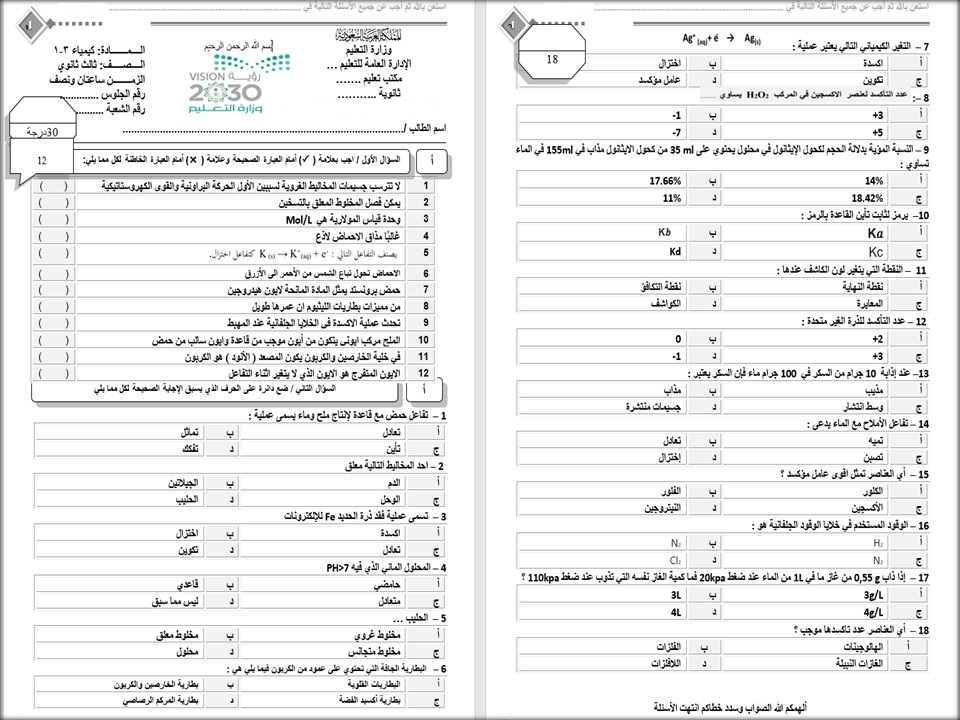 استعن بالله ثم أجب عن جميع الأسئلة التالية في
المملكة العربية السعودية
وزارة التعليم
الإدارة العامة للتعليم ...
مكتب تعليم ........
ثانوية ...........
بسم الله الرحمن الرحيم
VISION رؤية
2030
وزارة التعليم
المــــادة: كيمياء ٣-١
الـصـــف: ثالث ثانوي
الزمـــن ساعتان ونصف
رقم الجلوس
رقم الشعبة
30درجة
اسم الطالب /
أ السؤال الأول / اجب بعلامة (✓) أمام العبارة الصحيحة وعلامة (×) أمام العبارة الخاطئة لكل مما يلي: 12
1 لا تترسب جسيمات المخاليط الغروية لسببين الأول الحركة البراونية والقوى الكهروستاتيكية ( )
2 يمكن فصل المخلوط المعلق بالتسخين ( )
3 وحدة قياس المولارية هي Mol/L ( )
4 غالبًا مذاق الاحماض لاذع ( )
5 يصنف التفاعل التالي : K (s) → K+(aq) + e- كتفاعل اختزال. ( )
6 الاحماض تحول تباع الشمس من الأحمر الى الأزرق ( )
7 حمض برونستد يمثل المادة المانحة لايون هيدروجين ( )
8 من مميزات بطاريات الليثيوم ان عمرها طويل ( )
9 تحدث عملية الاكسدة في الخلايا الجلفانية عند المهبط ( )
10 الملح مركب ايوني يتكون من أيون موجب من قاعدة وايون سالب من حمض ( )
11 في خلية الخارصين والكربون يكون المصعد ( الأنود ) هو الكربون ( )
12 الايون المتفرج هو الايون الذي لا يتغير اثناء التفاعل ( )
أ السؤال الثاني / ضع دائرة على الحرف الذي يسبق الإجابة الصحيحة لكل مما يلي
1 – تفاعل حمض مع قاعدة لإنتاج ملح وماء يسمى عملية :
أ تعادل ب تماثل
ج تأين د تفكك
2 – احد المخاليط التالية معلق
أ الدم ب الجيلاتين
ج الوحل د الحليب
3 – تسمى عملية فقد ذرة الحديد Fe للإلكترونات
أ اكسدة ب اختزال
ج تعادل د تكوين
4 – المحلول المائي الذي فيه PH>7
أ حامضي ب قاعدي
ج متعادل د ليس مما سبق
5 – الحليب ...
أ مخلوط غروي ب مخلوط معلق
ج مخلوط متجانس د محلول
6 – البطارية الجافة التي تحتوي على عمود من الكربون فيما يلي هي :
أ البطاريات القلوية ب بطارية الخارصين والكربون
ج بطارية أكسيد الفضة د بطارية المركم الرصاصي
استعن بالله ثم أجب عن جميع الأسئلة التالية في
18
7 – التغير الكيميائي التالي يعتبر عملية : Ag+ (aq)+ é → Ag(s)
أ اكسدة ب اختزال
ج تكوين د عامل مؤكسد
8 –: عدد التأكسد لعنصر الاكسجين في المركب H2O2 يساوي ......
أ +3 ب -1
ج +5 د -7
9 – النسبة المؤية بدلالة الحجم لكحول الإيثانول في محلول يحتوي على 35 ml من كحول الايثانول مذاب في 155ml في الماء
تساوي :
أ 14% ب 17.66%
ج 18.42% د 11%
10– يرمز لثابت تأين القاعدة بالرمز :
أ Ka ب Kb
ج Kc د Kd
11 – النقطة التي يتغير لون الكاشف عندها :
أ نقطة النهاية ب نقطة التكافؤ
ج المعايرة د الكواشف
12 – عدد التأكسد للذرة الغير متحدة :
أ +2 ب 0
ج +3 د -1
13– عند إذابة 10 جرام من السكر في 100 جرام ماء فإن السكر يعتبر :
أ مذيب ب مذاب
ج وسط انتشار د جسيمات منتشرة
14 – تفاعل الأملاح مع الماء يدعى :
أ تميه ب تعادل
ج تصبن د إختزال
15 – أي العناصر تمثل اقوى عامل مؤكسد ؟
أ الكلور ب الفلور
ج الأكسجين د النيتروجين
16 – الوقود المستخدم في خلايا الوقود الجلفانية هو :
أ H2 ب N2
ج N2 د Cl2
17 – إذا ذاب 0,55 g من غاز ما في 1L من الماء عند ضغط 20kpa فما كمية الغاز نفسه التي تذوب عند ضغط 110kpa ؟
أ 3g/L ب 3L
ج 4g/L د 4L
18 – أي العناصر عدد تأكسدها موجب ؟
أ الهالوجينات ب الفلزات
ج الغازات النبيلة د اللافلزات
ألهمكم الله الصواب وسدد خطاكم انتهت الأسئلة